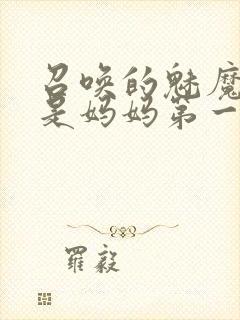 召唤的魅魔
是妈妈第一
羅毅